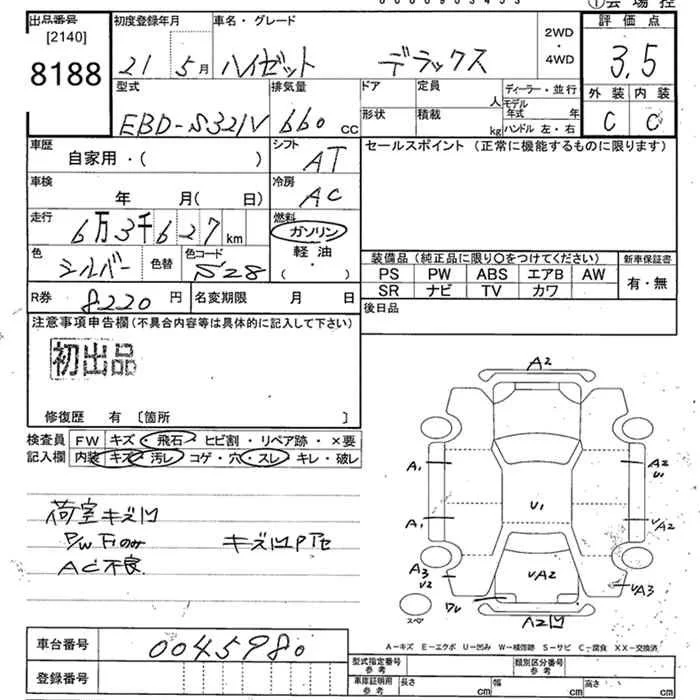 ①会場控
出品番号 初度登録年月 車名・グレード 2WD・4WD 評価点
[2140]
8188 21 5月 ハイゼット デラックス 3.5
型式 排気量 ドア 定員 人 ディーラー・並行 外装 内装
EBD-S321V 660 cc 形状 積載 kg モデル年式 年 ハンドル 左・右 C C
車歴 自家用・( ) シフト AT セールスポイント(正常に機能するものに限ります)
車検 年 月(日) 冷房 AC
走行 6万3千627km 燃料 ガソリン・軽油・( )
色 シルバー 色替 色コード S28
装備品(純正品に限り○をつけてください) 新車保証書
PS PW ABS エアB AW 有・無
SR ナビ TV カワ
R券 8220円 名変期限 月 日 後日品
注意事項申告欄(不具合内容等は具体的に記入して下さい)
初出品
修復歴 有 〔箇所 〕
検査員 FW キズ・飛石・ヒビ割・リペア跡・×要
記入欄 内装 キズ・汚レ・コゲ・穴・スレ・キレ・破レ
荷室キズ凹
P/W Fのみ キズ凹
AC不良
A2
A1 A2
U1
U1
A1 UA2
A3
U2
UA2
UA3
スペア
A2凹
A-キズ E-エクボ U-凹み W-補修跡 S-サビ C-腐食 XX-交換済
車台番号 0045980
登録番号
型式指定番号 参考 類別区分番号 参考
車庫証明用 参考 長さ cm 幅 cm 高さ cm